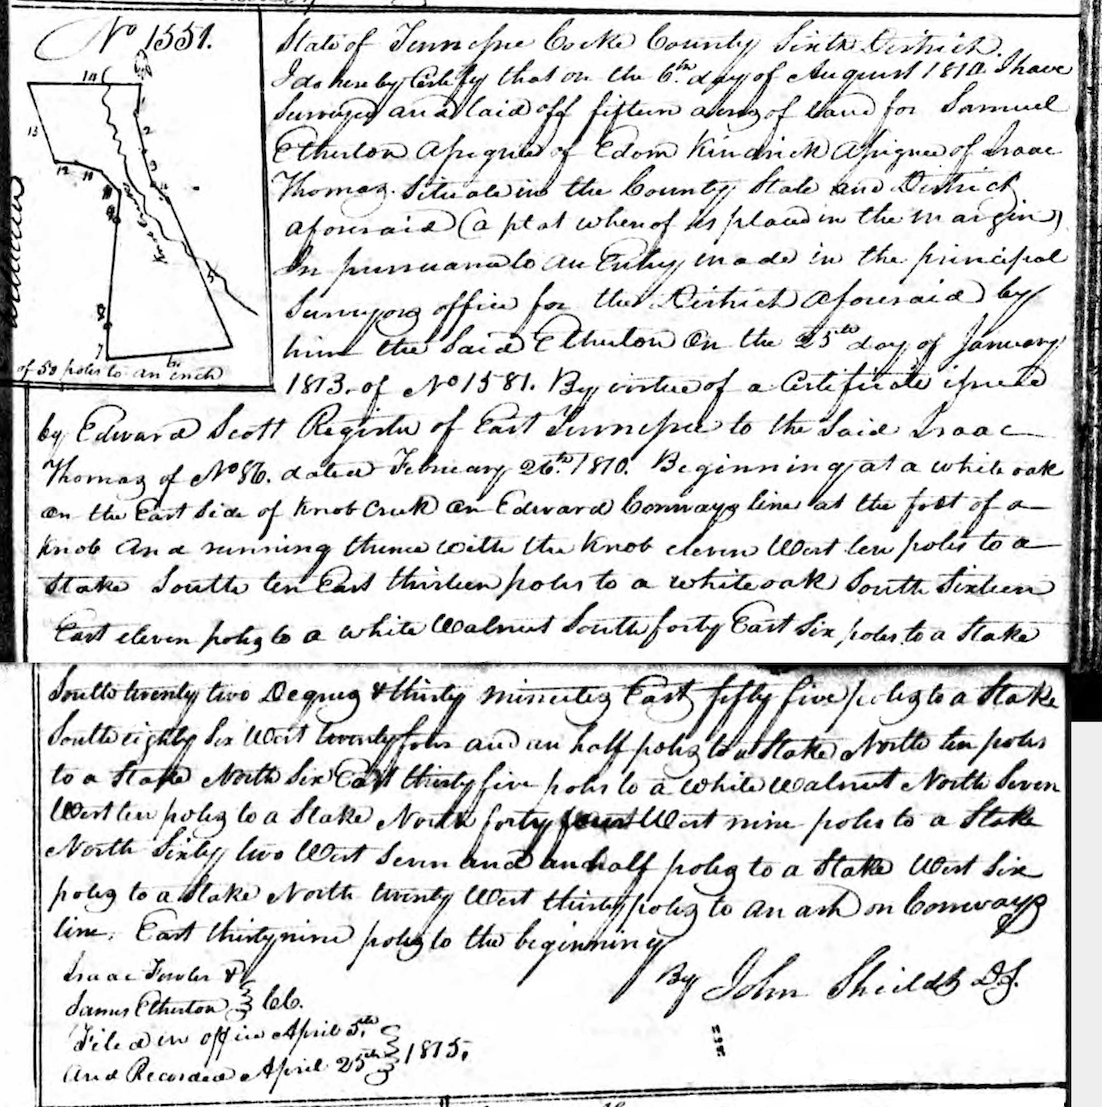 No 1551.
State of Tennessee Cocke County Sixth District.
I do hereby Certify that on the 6th day of August 1814 I have
Surveyed and laid off fifteen acres of land for Samuel
Etherton assignee of Edom Kindrick assignee of Isaac
Thomas. Situate in the County State and District
aforesaid (a plat whereof is placed in the margin)
In pursuance to an Entry made in the principal
Surveyors office for the District aforesaid by
him the Said Etherton on the 25th day of January
1813. of No 1581. By virtue of a Certificate issued
by Edward Scott Register of East Tennessee to the Said Isaac
Thomas of No 86. dated February 26th 1810. Beginning at a white oak
on the East Side of Knob Creek on Edward Conways line at the foot of a
Knob and running thence with the Knob eleven West ten poles to a
Stake South ten East thirteen poles to a white oak South Sixteen
East eleven poles to a white Walnut South forty East Six poles to a Stake
South twenty two Degrees & thirty minutes East fifty five poles to a Stake
South eighty Six West twenty four and an half poles to a Stake North ten poles
to a Stake North Six East thirty five poles to a White Walnut North Seven
West ten poles to a Stake North forty four West nine poles to a Stake
North Sixty two West Seven and an half poles to a Stake West Six
poles to a Stake North twenty West thirty poles to an ash on Conways
line. East thirty nine poles to the beginning
By John Shields D.S.
Isaac Fowler &
James Etherton } CC.
Filed in office April 5th
And Recorded April 25th } 1815.
14
2
13
12
11
10
9
8
7
6
5
4
Knob Creek
of 50 poles to an inch